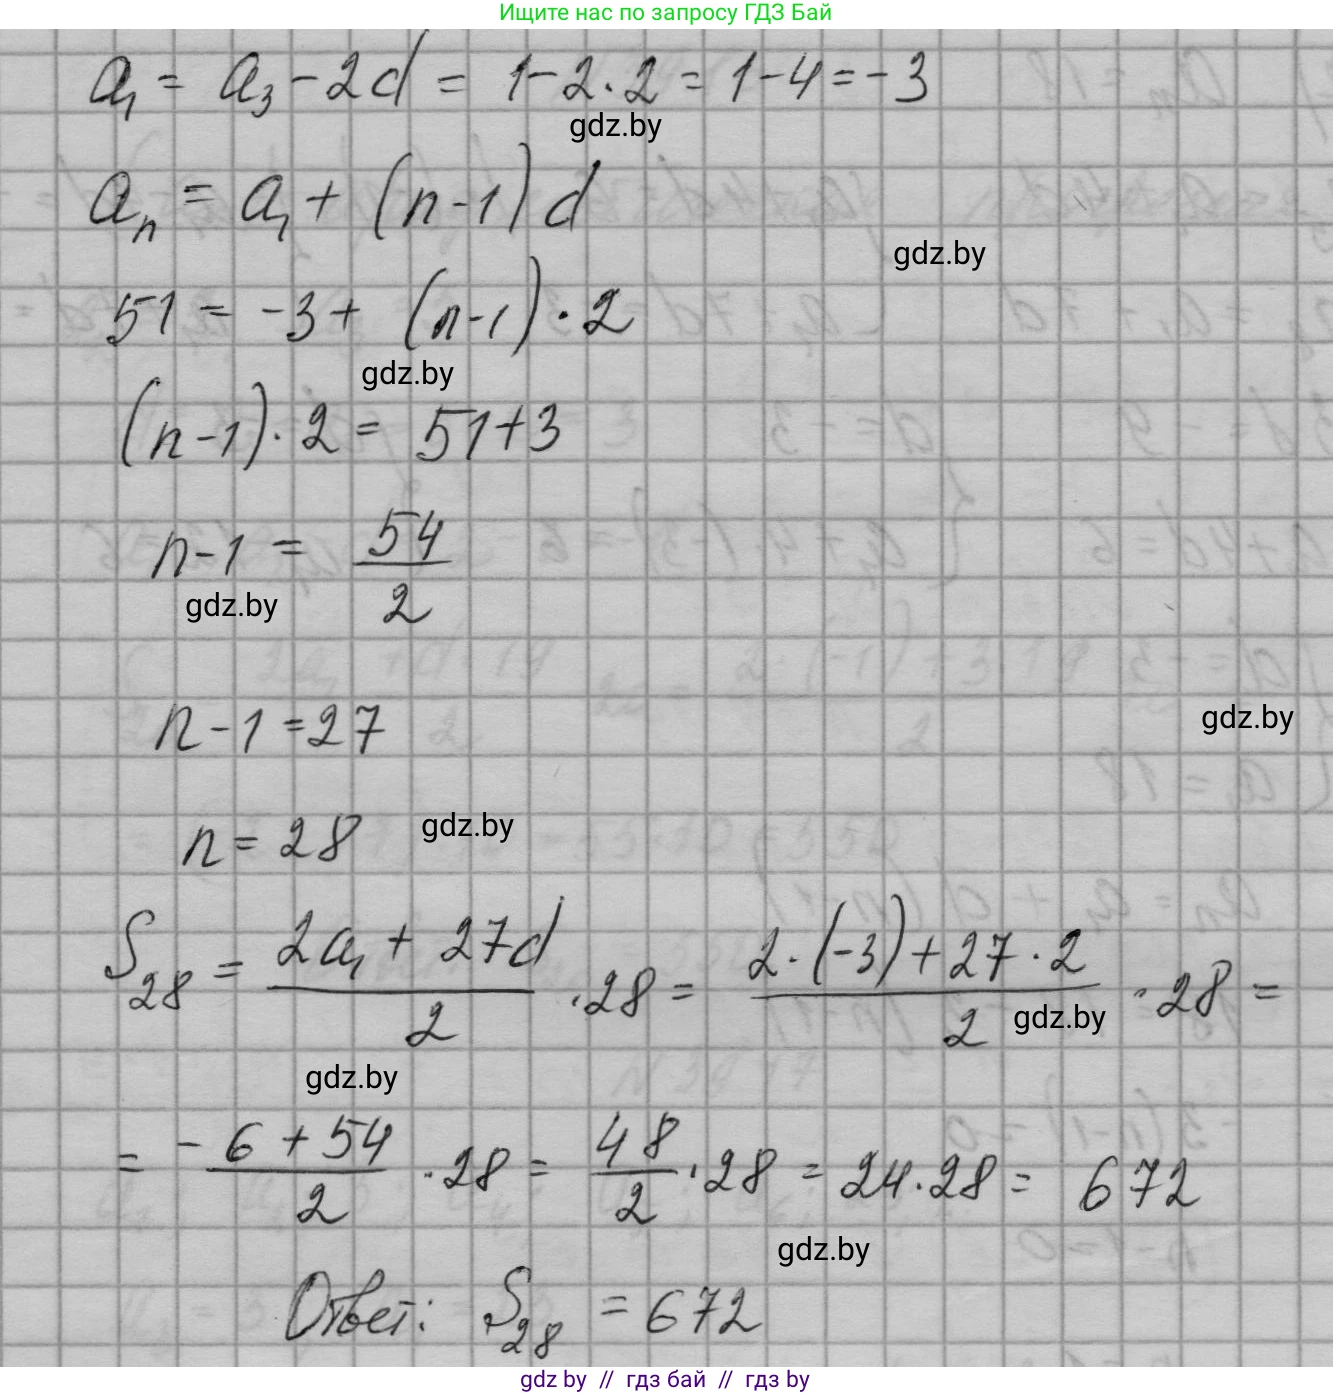 Ищите нас по запросу ГДЗ Бай
a₁ = a₃ - 2d = 1 - 2 · 2 = 1 - 4 = -3
gdz.by
aₙ = a₁ + (n-1)d
gdz.by
51 = -3 + (n-1) · 2
gdz.by
(n-1) · 2 = 51+3
n-1 = 54/2
gdz.by
n-1 = 27
gdz.by
n = 28
gdz.by
S₂₈ = (2a₁ + 27d)/2 · 28 = (2·(-3) + 27·2)/2 · 28 =
gdz.by
gdz.by
= (-6 + 54)/2 · 28 = 48/2 · 28 = 24·28 = 672
gdz.by
Ответ: S₂₈ = 672
gdz by // гдз бай // гдз by